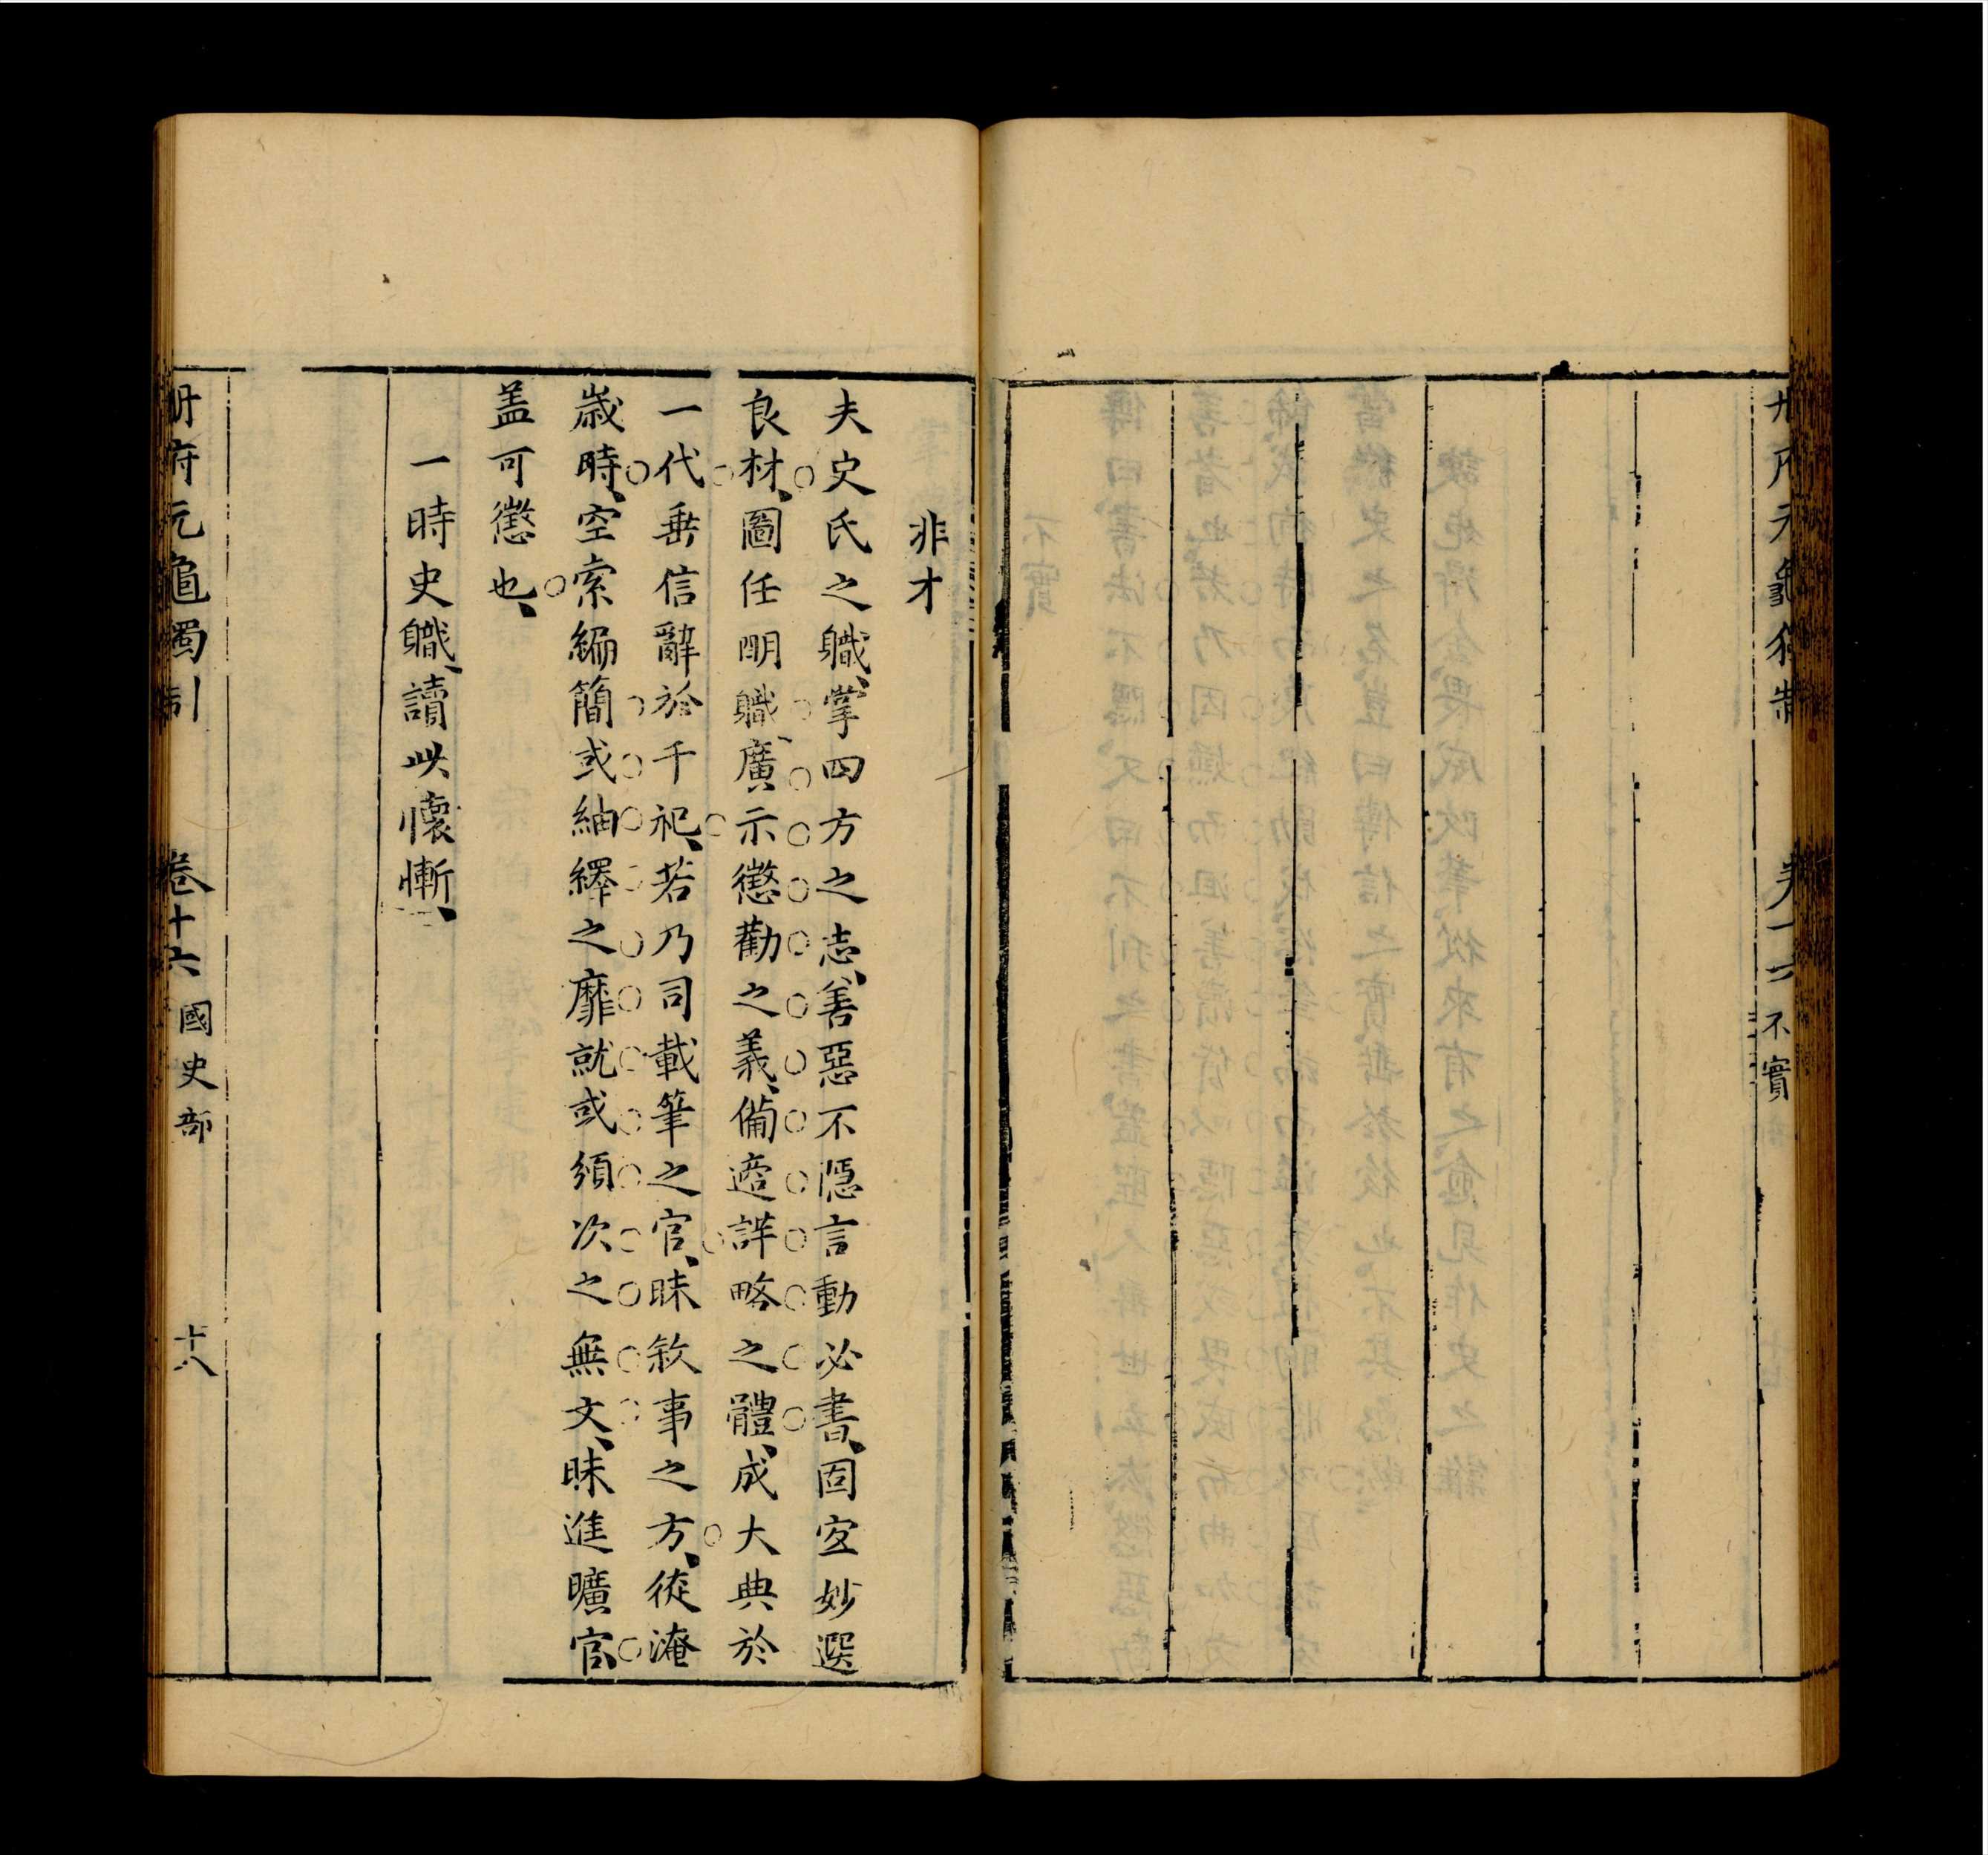 不實
非才
夫史氏之職、掌四方之志、善惡不隱言動必書、固宜妙選
良材、圖任明職、廣示懲勸之義、備適詳略之體、成大典於
一代垂信辭於千祀、若乃司載筆之官、昧敘事之方、徒淹
歲時、空索編簡或紬繹之靡就或須次之無文、昧進曠官、
盖可懲也、
一時史職、讀此懷慚、
册府元龜獨制 卷十六 國史部 十八